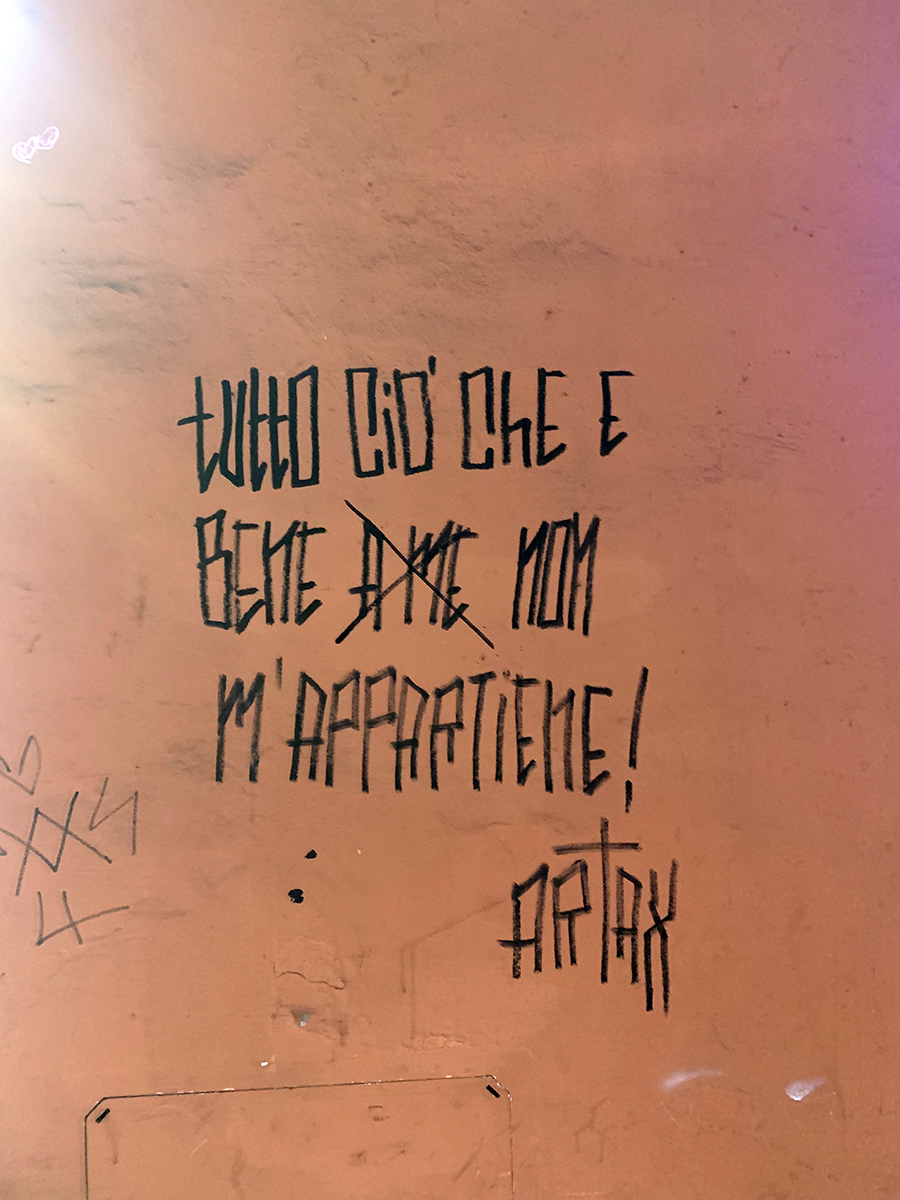 tUttO CiO' ChE E
BENE A ME NON
M'APPARTIENE!
ARTAX